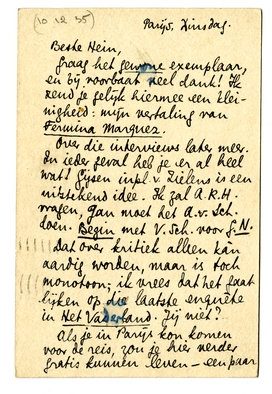 (10.12.35)
Parijs, Dinsdag.
Beste Hein,
Graag het gewone exemplaar,
en bij voorbaat veel dank! Ik
zend je gelijk hiermee een klei-
nigheid: mijn vertaling van
Fermina Marquez.
Over die interviews later meer.
In ieder geval heb je er al heel
wat! Gijsen inpl. v. Zielens is een
uitstekend idee. Ik zal A.R.H.
vragen, Jan moet het A.v.Sch.
doen. Begin met V.Sch. voor G.N.
Dat over kritiek alleen kan
aardig worden, maar is toch
monotoon; ik vrees dat het gaat
lijken op die laatste enquête
in Het Vaderland. Jij niet?
Als je in Parijs kon komen
voor de reis, zou je hier verder
gratis kunnen leven – een paar